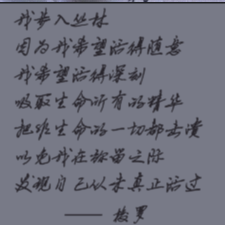 我步入丛林
因为我希望活得随意
我希望活得深刻
吸取生命所有的精华
把非生命的一切都击溃
以免我在弥留之际
发现自己从未真正活过
—— 梭罗